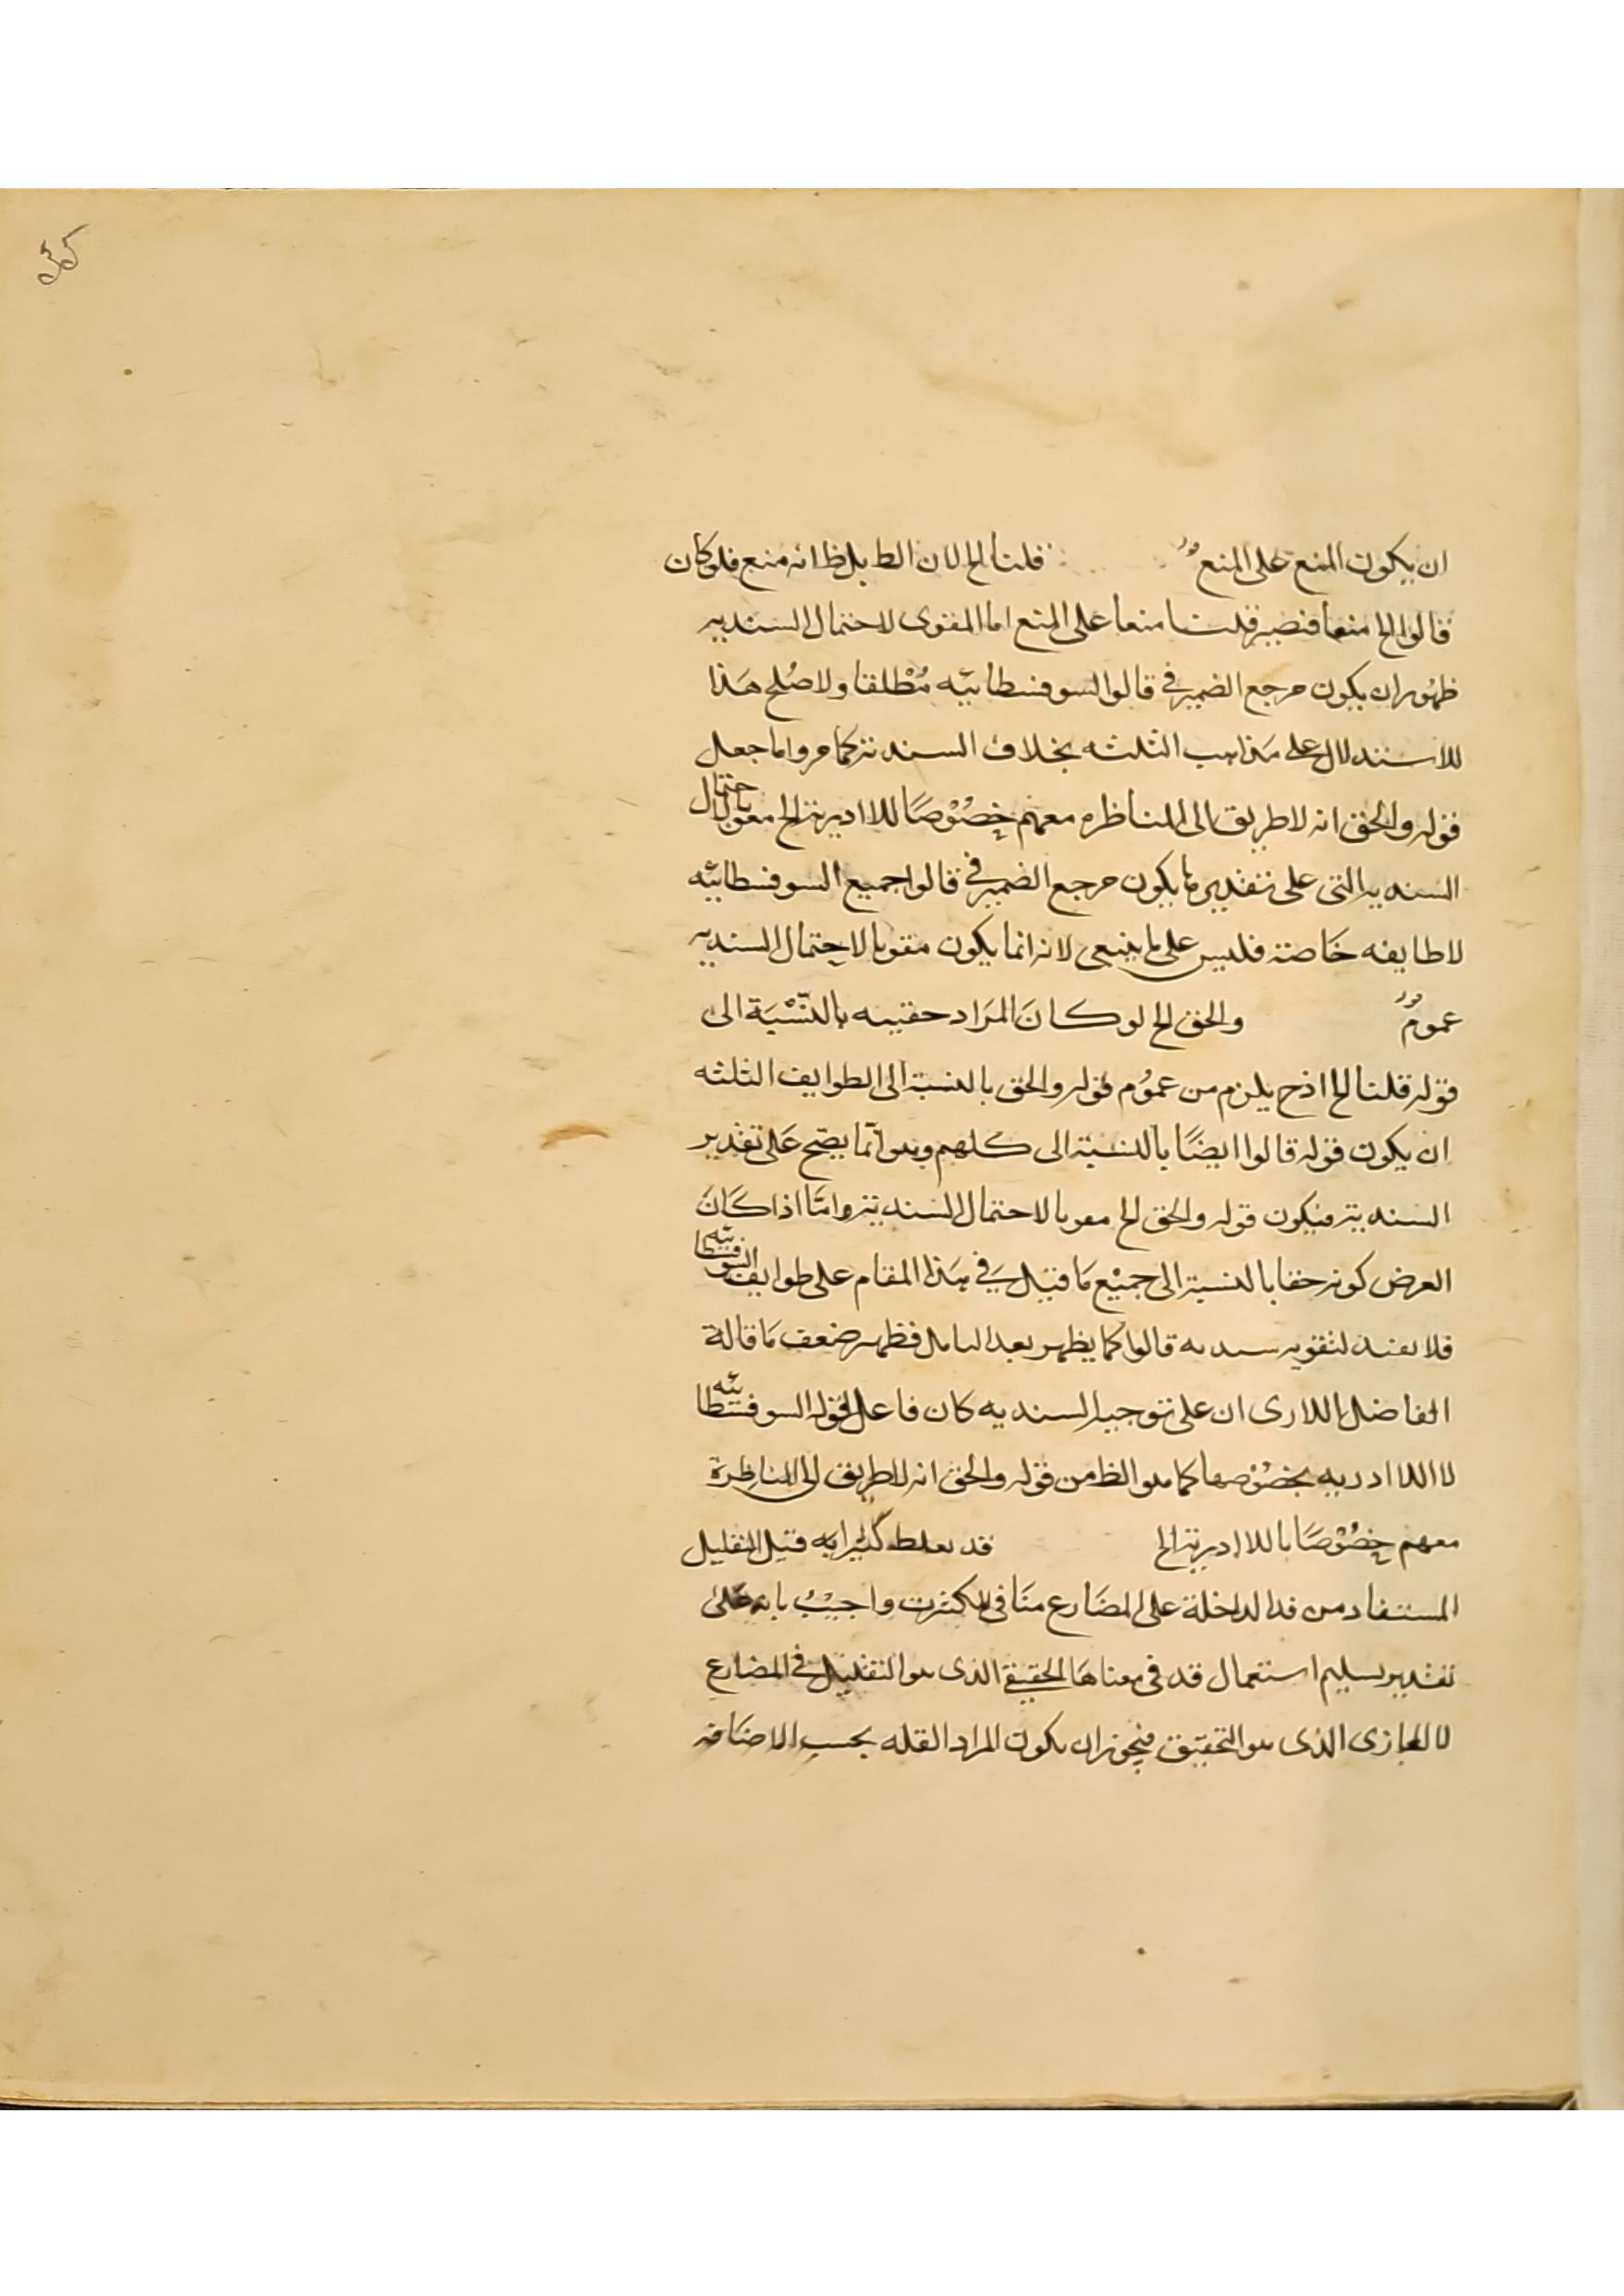 ان يكون المنع على المنع قلنا الخ لان الط بل ظ انه منع فلو كان
قالوا الخ منعا فتصير قلنا منعا على المنع اما المقوى لاحتمال السنديه
ظهور ان يكون مرجع الضمير في قالوا السوفسطائيه مطلقا ولا صلح هذا
للاستدلال على مذاهب الثلثه بخلاف السنديه كما مر واما جعل
قوله والحق انه لا طريق الى المناظره معهم خصوصا اللاادريه الخ مقويا لاحتمال
السنديه التي على تقديرها يكون مرجع الضمير في قالوا جميع السوفسطائيه
لا طايفه خاصة فليس على ما ينبغي لانه انما يكون مقويا لاحتمال السنديه
عموم والحق الخ لو كان المراد حقيبه بالنسبة الى
قوله قلنا الخ اذ ح يلزم من عموم قوله والحق بالنسبة الى الطوايف الثلثه
ان يكون قوله قالوا ايضا بالنسبة الى كلهم وهو انما يصح على تقدير
السنديه فيكون قوله والحق الخ مقويا لاحتمال السنديه واما اذا كان
الغرض كونه حقا بالنسبة الى جميع ما قيل في هذا المقام على طوايف السوفسطائيه
فلا يفيد لتقويه سنديه قالوا كما يظهر بعد التامل فظهر ضعف ما قاله
الفاضل اللارى ان على توجيه السنديه كان فاعل لقوله السوفسطائيه
لا اللاادريه بخصوصها كما هو الظ من قوله والحق انه لا طريق الى المناظرة
معهم خصوصا باللاادريه الخ قد يغلط كثيرا يه قيل التقليل
المستفاد من قد الداخلة على المضارع منافى الكثرت واجيب بانه على
تقدير تسليم استعمال قد في معناها الحقيقي الذى هو التقليل في المضارع
لا المجازى الذى هو التحقيق فيجوز ان يكون المراد القله بحسب الاضافه